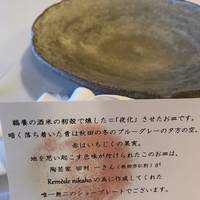 鵜養の酒米の籾殻で燻した=「夜化」させたお皿です。
暗く落ち着いた青は秋田の冬のブルーグレーの夕方の空、
赤はいちじくの果実。
地を思い起こす色味が付けられたこのお皿は、
陶芸家 田村 一さん（秋田市仁別）が
Remède nikaho の為に作成してくれた
唯一無二のショープレートでございます。